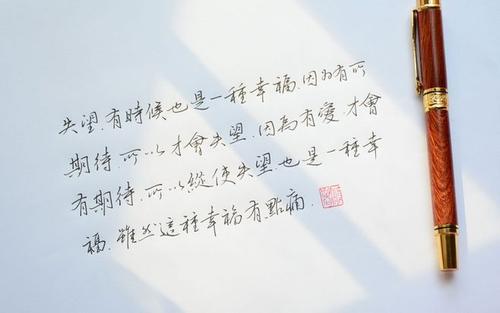 失望.有時候也是一種幸福.因为有所
期待.所以才會失望.因為有愛.才會
有期待.所以縱使失望.也是一種幸
福.雖然這種幸福有點痛.